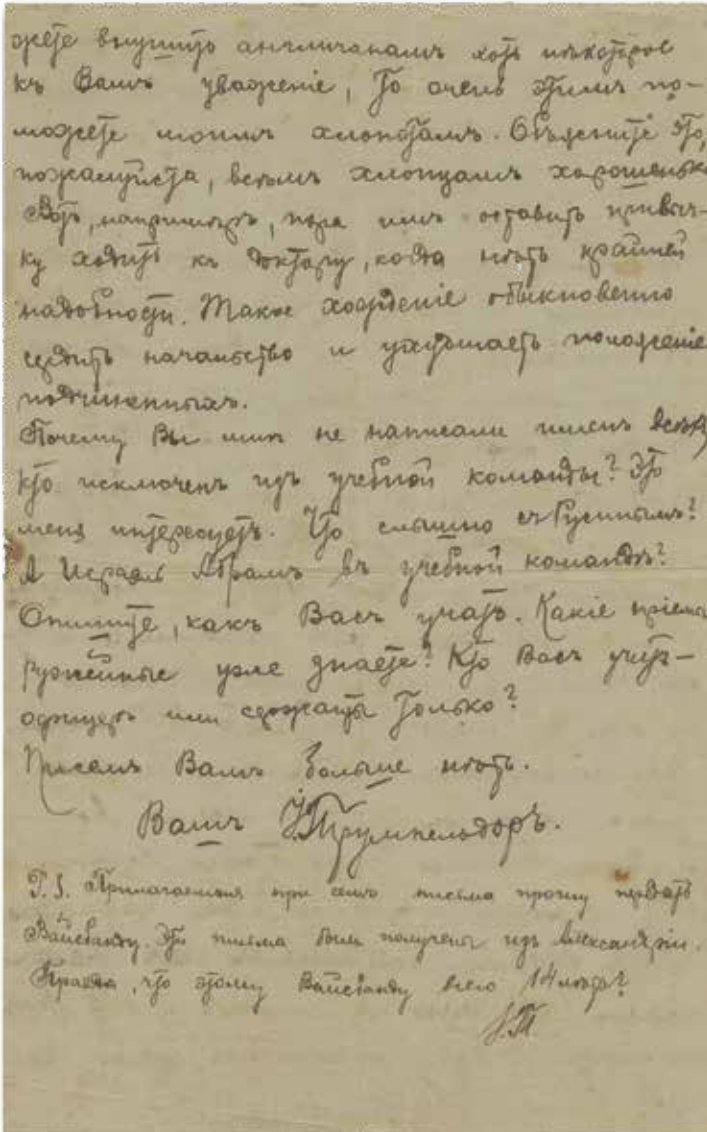 жете внушить англичанамъ хоть нѣкоторое
къ Вамъ уваженіе, то очень этимъ по-
можете моимъ хлопотамъ. Объясните это,
пожалуйста, всѣмъ хлопцамъ хорошенько.
Вотъ, напримѣръ, пора имъ оставить привыч-
ку ходить къ доктору, когда нѣтъ крайней
надобности. Такое хожденіе обыкновенно
сердитъ начальство и ухудшаетъ положеніе
подчиненныхъ.
Почему Вы мнѣ не написали именъ всѣхъ,
кто исключенъ изъ учебной команды? Это
меня интересуетъ. Что слышно съ Гусинымъ?
А Израэль Абрамъ въ учебной командѣ?
Опишите, какъ Васъ учатъ. Какіе пріемы
ружейные уже знаете? Кто Васъ учитъ –
офицеръ или сержанты только?
Писемъ Вамъ больше нѣтъ.
Вашъ І.Трумпельдоръ.
P.S. Прилагаемыя при семъ письма прошу передать
Вайсбанду. Эти письма были получены изъ Александріи.
Правда, что этому Вайсбанду всего 14 лѣтъ?
І.Т.